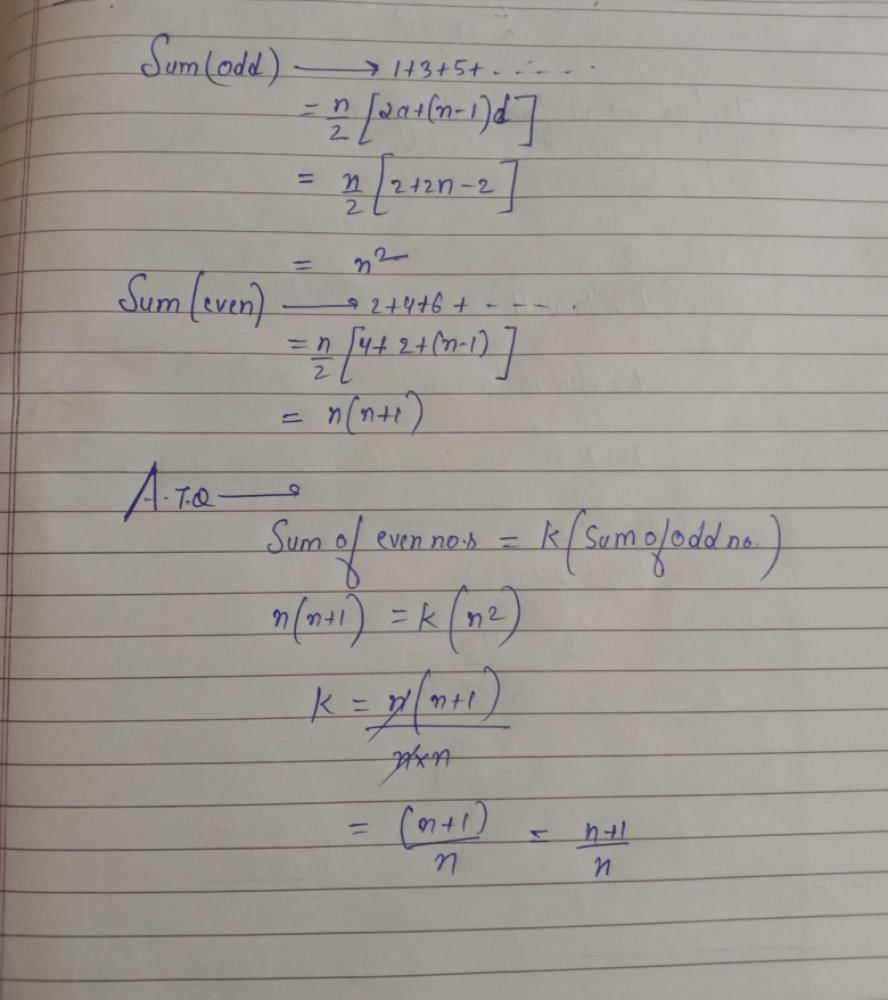 Sum(odd) → 1+3+5+ . - - - - .
= n/2 [2a+(n-1)d]
= n/2 [2+2n-2]
= n²
Sum(even) → 2+4+6 + - - - .
= n/2 [4+ 2+(n-1)]
= n(n+1)
A.T.Q →
Sum of even no.s = k(Sum of odd no.)
n(n+1) = k(n²)
k = n(n+1)/n×n
= (n+1)/n = n+1/n